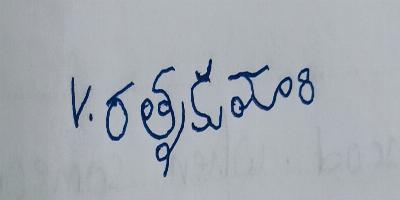 V. రత్నకుమారి